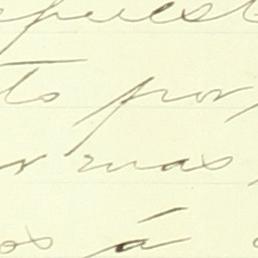 epuest
to por
r mas
os á